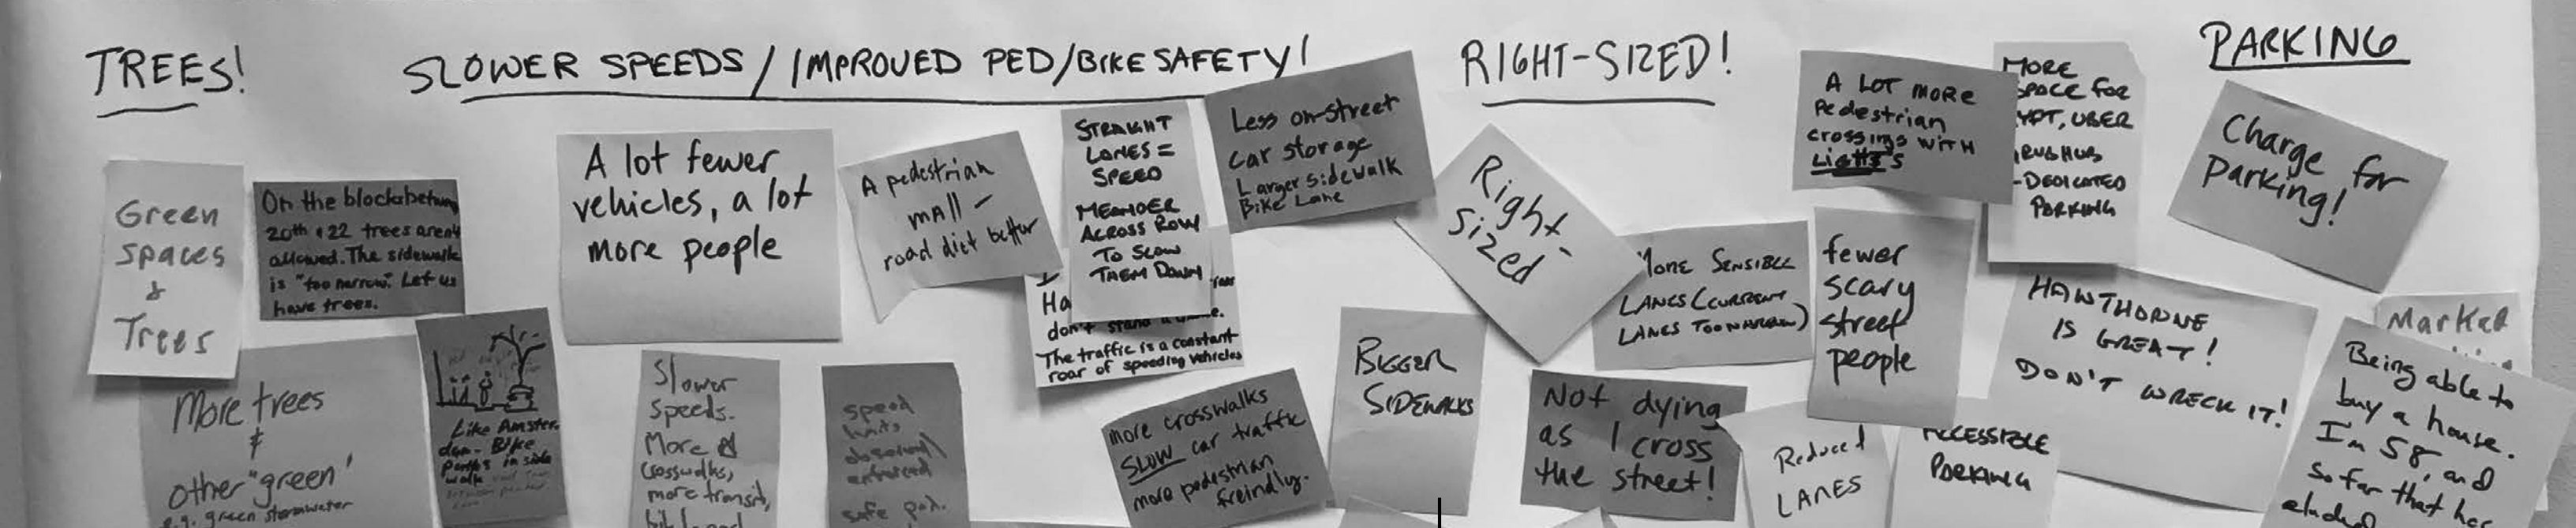 TREES!
SLOWER SPEEDS / IMPROVED PED/BIKE SAFETY!
RIGHT-SIZED!
PARKING
Green
spaces
&
Trees
On the blocks between
20th & 22 trees aren't
allowed. The sidewalk
is "too narrow." Let us
have trees.
More trees
&
other "green"
e.g. green stormwater
Like Amster-
dam. Bike
paths in side
walk
A lot fewer
vehicles, a lot
more people
Slower
speeds.
More
crosswalks,
more transit,
speed
limits
enforced
safe
A pedestrian
mall -
road diet better
STRAIGHT
LANES =
SPEED
MEANDER
ACROSS ROW
TO SLOW
THEM DOWN
Ha
don't stand a
The traffic is a constant
roar of speeding vehicles
Less on-street
car storage
Larger sidewalk
Bike Lane
more crosswalks
SLOW car traffic
more pedestrian
freindly.
BIGGER
SIDEWALKS
Right-
sized
MORE SENSIBLE
LANES (CURRENT
LANES TOO NARROW)
Not dying
as I cross
the street!
Reduced
LANES
A LOT MORE
Pedestrian
crossings WITH
LIGHTS
fewer
scary
street
people
MORE
SPACE FOR
UBER
-DEDICATED
PARKING
HAWTHORNE
IS GREAT!
DON'T WRECK IT!
ACCESSIBLE
PARKING
Charge for
Parking!
Market
Being able to
buy a house.
I'm 58, and
so far that has